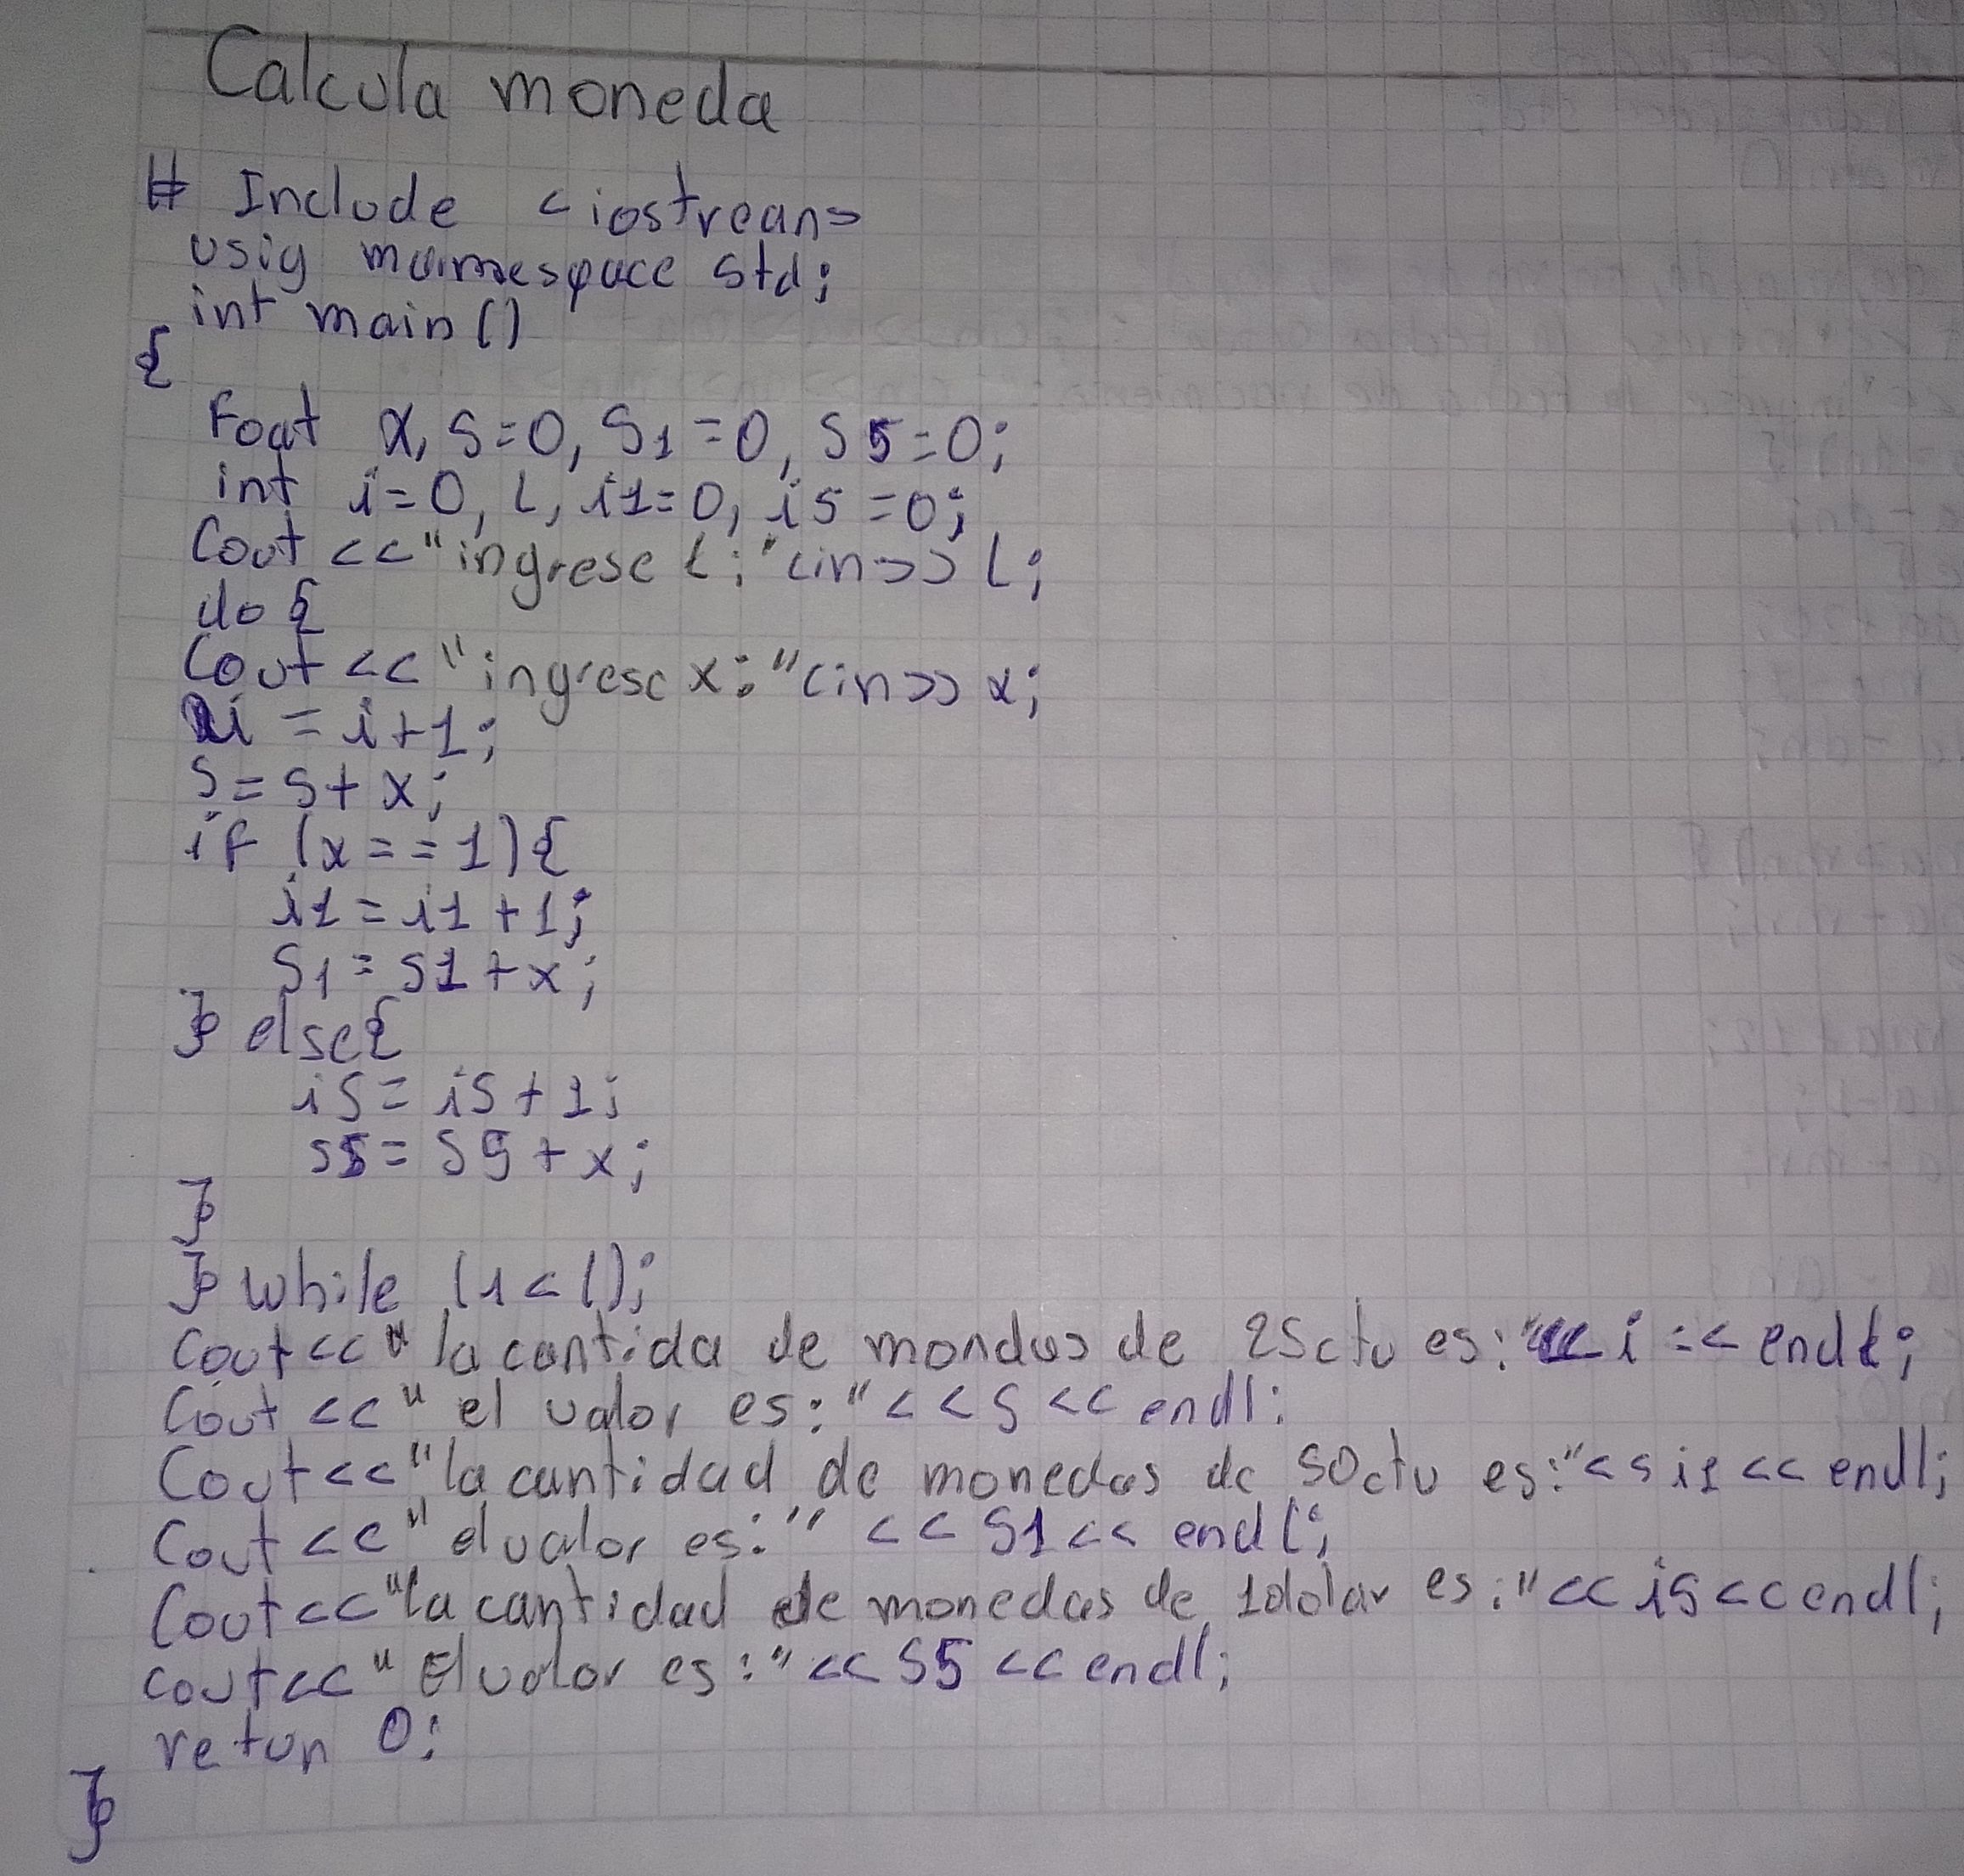 Calcula moneda
# Include <iostrean>
usig mainespace std;
int main()
{
Foat x, s=0, S1=0, S5=0;
int i=0, L, i1=0, i5=0;
Cout <<"ingrese L:" cin>> L;
do {
Cout <<"ingrese x:" cin>> x;
i = i+1;
s = s + x;
if (x==1){
i1 = i1 +1;
S1 = s1 + x;
} else{
i5 = i5 + 1;
s5 = s5 + x;
}
} while (1<l);
Cout<<" la cantida de mondas de 25ctv es:"<< i =< endl;
Cout <<" el valor es:" << S << endl;
Cout<<"la cantidad de monedas de 50ctv es:"<< i1 << endl;
Cout <<" el valor es:" << S1 << endl;
Cout<<"la cantidad de monedas de 1dolar es:"<< i5 << endl;
cout<<" El valor es:"<< S5 << endl;
retun 0;
}